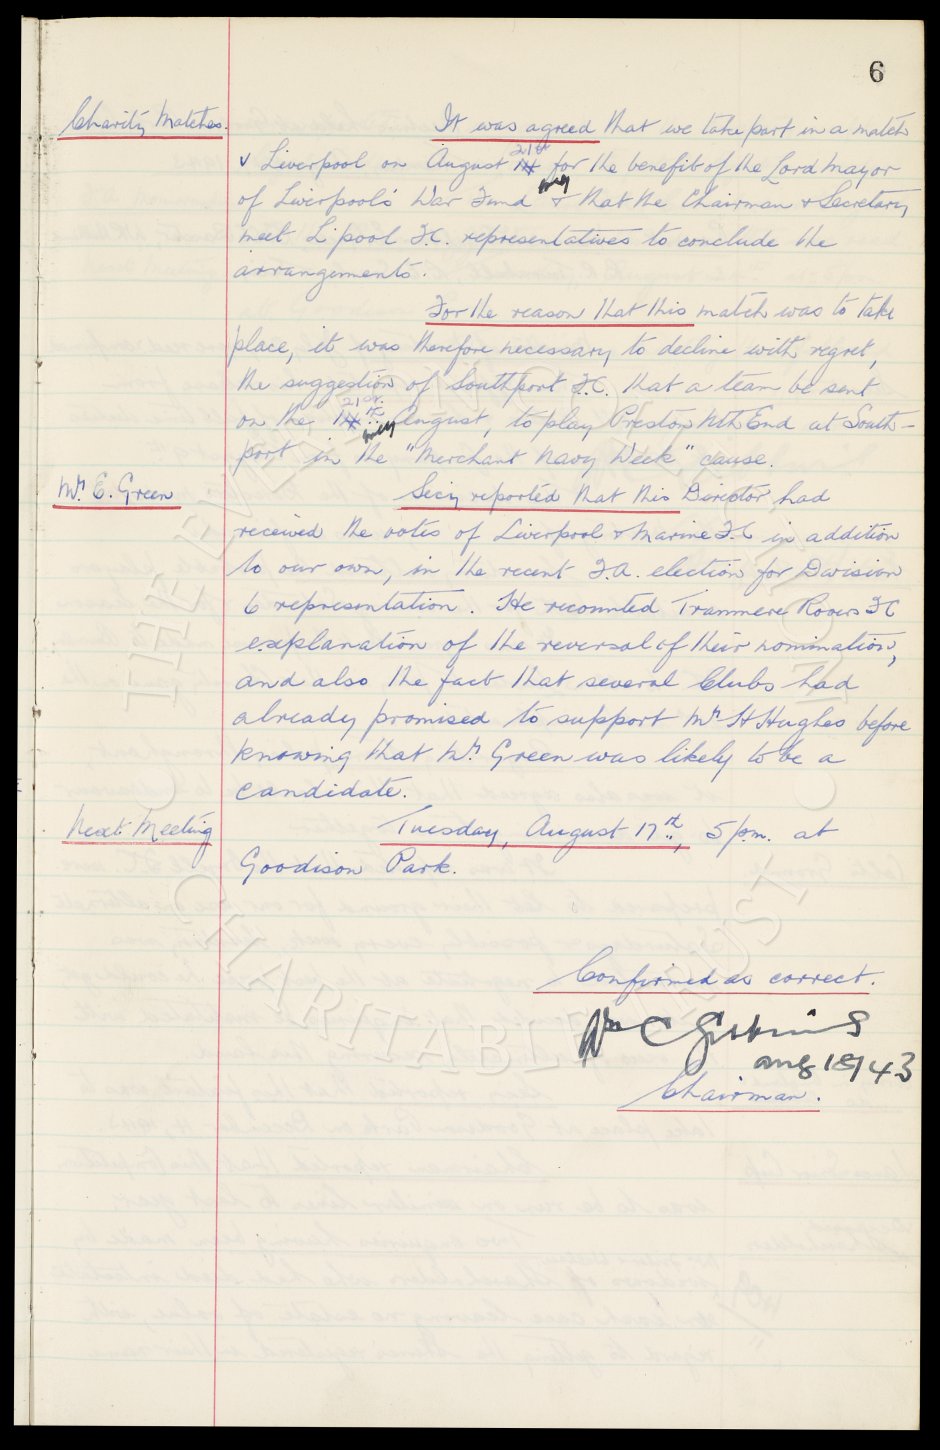 6
Charity Matches.
It was agreed that we take part in a match
v Liverpool on August 14 21st for the benefit of the Lord Mayor
of Liverpool's War Fund & that the Chairman & Secretary
meet L'pool F.C. representatives to conclude the
arrangements.
For the reason that this match was to take
place, it was therefore necessary to decline with regret,
the suggestion of Southport F.C. that a team be sent
on the 14th 21st August, to play Preston Nth End at South-
port in the "Merchant Navy Week," cause.
Mr. E. Green
Secy reported that this Director had
received the votes of Liverpool & Marine F.C in addition
to our own, in the recent F.A. election for Division
6 representation. He recounted Tranmere Rovers FC
explanation of the reversal of their nomination,
and also the fact that several Clubs had
already promised to support Mr H Hughes before
knowing that Mr. Green was likely to be a
candidate.
Next Meeting
Tuesday, August 17th, 5 p.m. at
Goodison Park.
Confirmed as correct.
Wm C Gibbins
Aug 18/43
Chairman.
THE EVERTON COLLECTION
CHARITABLE TRUST